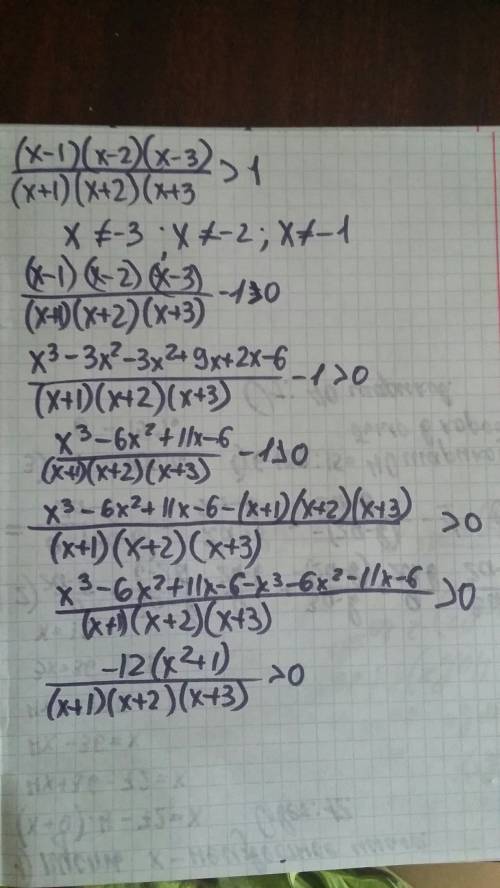 (x-1)(x-2)(x-3)/(x+1)(x+2)(x+3 > 1
x ≠ -3 ; x ≠ -2 ; x ≠ -1
(x-1)(x-2)(x-3)/(x+1)(x+2)(x+3) - 1 > 0
x³ - 3x² - 3x² + 9x + 2x - 6/(x+1)(x+2)(x+3) - 1 > 0
x³ - 6x² + 11x - 6/(x+1)(x+2)(x+3) - 1 > 0
x³ - 6x² + 11x - 6 - (x+1)(x+2)(x+3)/(x+1)(x+2)(x+3) > 0
x³ - 6x² + 11x - 6 - x³ - 6x² - 11x - 6/(x+1)(x+2)(x+3) > 0
-12(x²+1)/(x+1)(x+2)(x+3) > 0